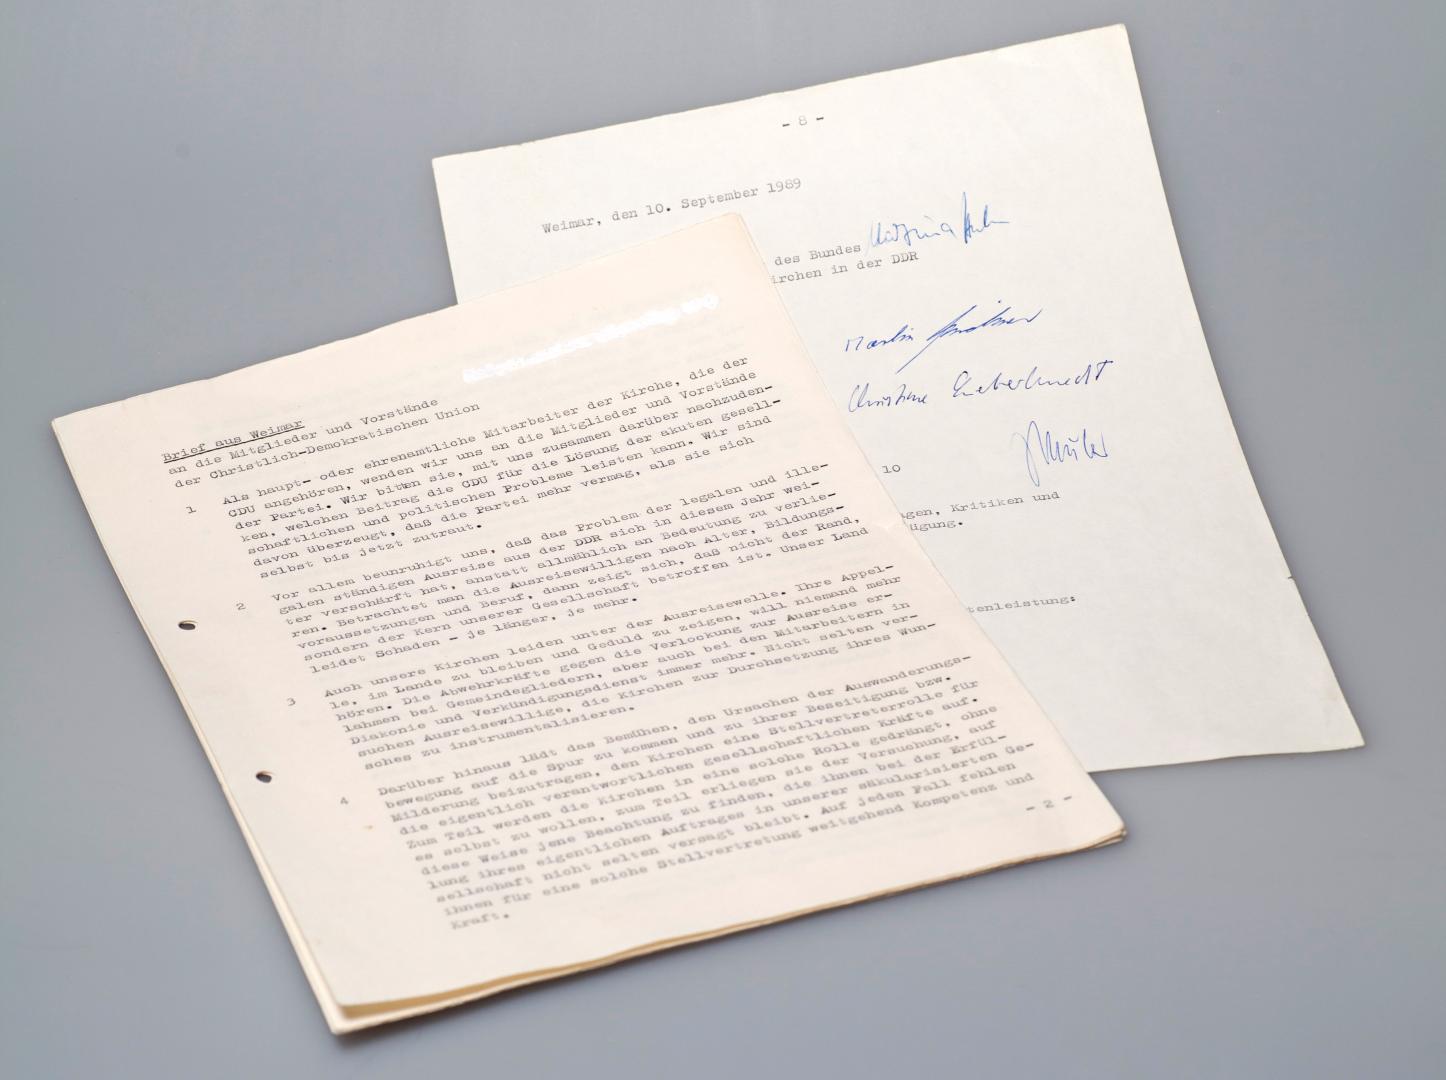 Brief aus Weimar
an die Mitglieder und Vorstände
der Christlich-Demokratischen Union
1
Als haupt- oder ehrenamtliche Mitarbeiter der Kirche, die der
CDU angehören, wenden wir uns an die Mitglieder und Vorstände
der Partei. Wir bitten sie, mit uns zusammen darüber nachzuden-
ken, welchen Beitrag die CDU für die Lösung der akuten gesell-
schaftlichen und politischen Probleme leisten kann. Wir sind
davon überzeugt, daß die Partei mehr vermag, als sie sich
selbst bis jetzt zutraut.
2
Vor allem beunruhigt uns, daß das Problem der legalen und ille-
galen ständigen Ausreise aus der DDR sich in diesem Jahr wei-
ter verschärft hat, anstatt allmählich an Bedeutung zu verlie-
ren. Betrachtet man die Ausreisewilligen nach Alter, Bildungs-
voraussetzungen und Beruf, dann zeigt sich, daß nicht der Rand,
sondern der Kern unserer Gesellschaft betroffen ist. Unser Land
leidet Schaden - je länger, je mehr.
3
Auch unsere Kirchen leiden unter der Ausreisewelle. Ihre Appel-
le, im Lande zu bleiben und Geduld zu zeigen, will niemand mehr
hören. Die Abwehrkräfte gegen die Verlockung zur Ausreise er-
lahmen bei Gemeindegliedern, aber auch bei den Mitarbeitern in
Diakonie und Verkündigungsdienst immer mehr. Nicht selten ver-
suchen Ausreisewillige, die Kirchen zur Durchsetzung ihres Wun-
sches zu instrumentalisieren.
4
Darüber hinaus lädt das Bemühen, den Ursachen der Auswanderungs-
bewegung auf die Spur zu kommen und zu ihrer Beseitigung bzw.
Milderung beizutragen, den Kirchen eine Stellvertreterrolle für
die eigentlich verantwortlichen gesellschaftlichen Kräfte auf.
Zum Teil werden die Kirchen in eine solche Rolle gedrängt, ohne
es selbst zu wollen, zum Teil erliegen sie der Versuchung, auf
diese Weise jene Beachtung zu finden, die ihnen bei der Erfül-
lung ihres eigentlichen Auftrages in unserer säkularisierten Ge-
sellschaft nicht selten versagt bleibt. Auf jeden Fall fehlen
ihnen für eine solche Stellvertretung weitgehend Kompetenz und
Kraft.
- 2 -
- 8 -
Weimar, den 10. September 1989
des Bundes
irchen in der DDR
Martin
Christine Lieberknecht
lo
agen, Kritiken und
ügung.
tenleistung: